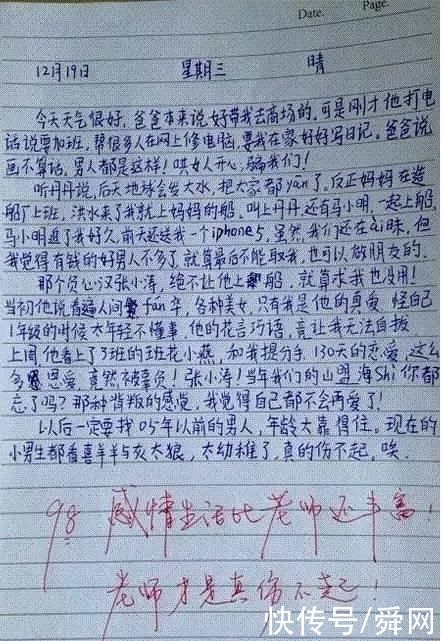 Date. Page.
12月19日 星期三 晴
今天天气很好,爸爸本来说好带我去商场的,可是刚才他打电
话说要加班,帮很多人在网上修电脑,要我在家好好写日记。爸爸说
画不算话,男人都是这样!哄女人开心,骗我们!
听丹丹说,后天地球会发大水,把大家都yān了。反正妈妈在造
船厂上班,洪水来了我就上妈妈的船,叫上丹丹还有马小明,一起上船,
马小明追了我好久,前天还送我一个iphone5,虽然我们还在ài昧,但
我觉得有钱的好男人不多了,就算最后不能取我,也可以做朋友的。
那个负心汉张小涛,绝不让他上船,就算求我也没用!
当初他说看遍人间fán华,各种美女,只有我是他的真爱,怪自己
1年级的时候太年轻不懂事,他的花言巧语,竟让我无法自拔
上周他看上了3班的班花小燕,和我提分手,130天的恋爱,这么
多恩爱,竟然被辜负!张小涛!当年我们的山盟海Shi你都
忘了吗?那种背叛的感觉,我觉得自己都不会再爱了!
以后一定要找05年以前的男人,年龄大靠得住。现在的
小男生都看喜羊羊与灰太狼,太幼稚了,真的伤不起,唉.
98 感情生活比老师还丰富!
老师才是真伤不起!
快传号/舜网